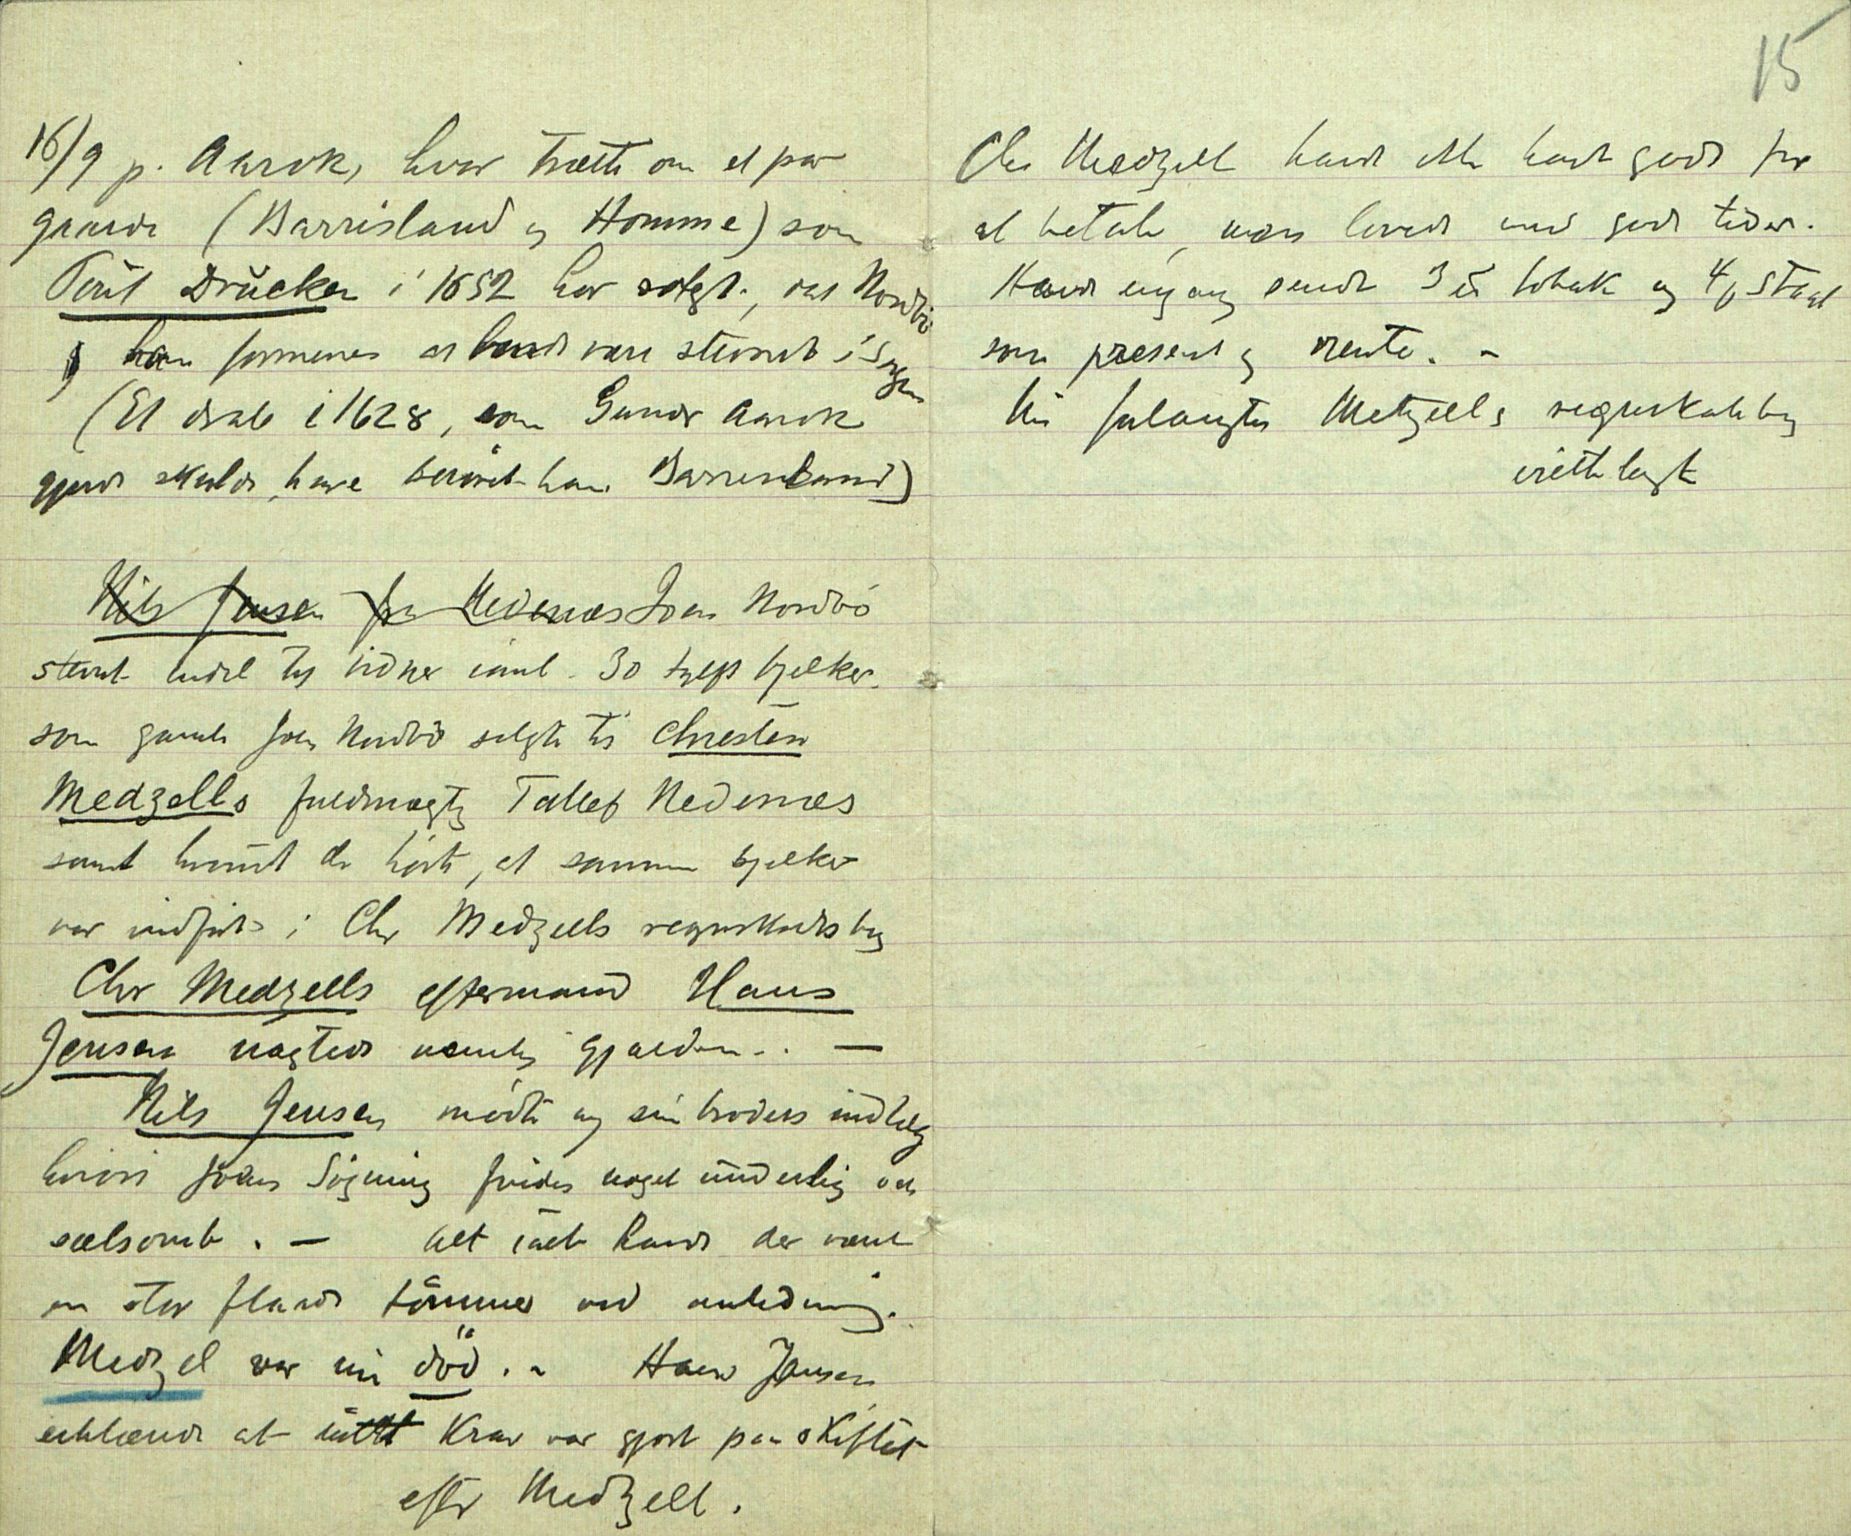 16/9 p. Aarok, hvor trætte om et par
gaarde (Barrisland og Homme) som
Poul Drucken i 1652 har solgt, Nordbö
han formenes at burde være stevnet i sagen
(Et skab i 1628, som Gunder Aarok
gjorde skulde have berövet ham Barrisland)
Nils Jensen fra Nedenæs Joen Nordbö
stevnt endel til vidner 30 tylft bjelker
som gamle Joen Nordbö solgte til Chresten
Medzells fuldmægtig Tallef Nedenæs
samt hvem der hörte, at samme bjelker
var indfört i Chr Medzells regnskabsbog
Chr Medzells eftermand Hans
Jensen nægtede nemlig gjælden. . —
Nils Jensen mödte og sin broders indlæg
hvori Joens Sögning findes noget underlig och
sælsomt . — der været
en stor flaade tömmer ved anledning.
Medzel var nu död . – Hans Jensen
erklærede at intet krav var gjort paa skiftet
efter Medzell .
15
Chr Medzell havde ikke havt gods for
at betale, men lovede med gode tider.
Havde engang sendt 3 ℔ tobak og 4 staal
som present og rente. –
Nu forlangtes Metzells regnskabsbog
irettelagt